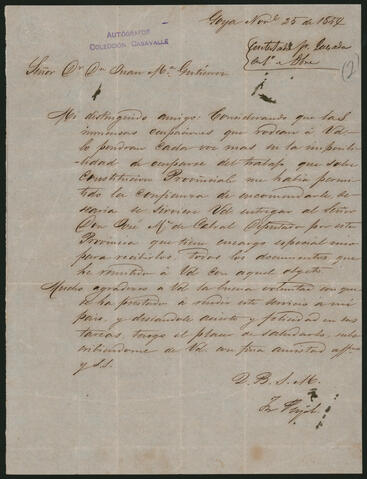 AUTÓGRAFOS
COLECCIÓN CASAVALLE
Goya Nov.e 25 de 1854
Contestada pr. Quesada
en 1º e Dbre
Señor Dr. Dn. Juan Ma. Gutierrez
Mi distinguido amigo: Considerando que las
inmensas ocupaciones que rodean á Vd.
lo pondran cada vez mas en la imposibi-
lidad de ocuparse del trabajo que sobre
Constitucion Provincial me habia permi-
tido la confianza de encomendarle, de-
searia se sirviera Vd. entregar al Señor
Don José Ma. de Cabral Diputado por esta
Provincia que tiene encargo especial mio
para recibirlos, todos los documentos que
he remitido á Vd. con aquel objeto.
Mucho agradezco á Vd. la buena voluntad con que
se ha prestado á rendir este servicio á mi
pais, y deseandole acierto y felicidad en sus
tareas, tengo el placer de saludarlo, subs-
cribiendome de Vd. con pura amistad affmo.
y S.S.
Q. B. S. M.
Jn. Pujol